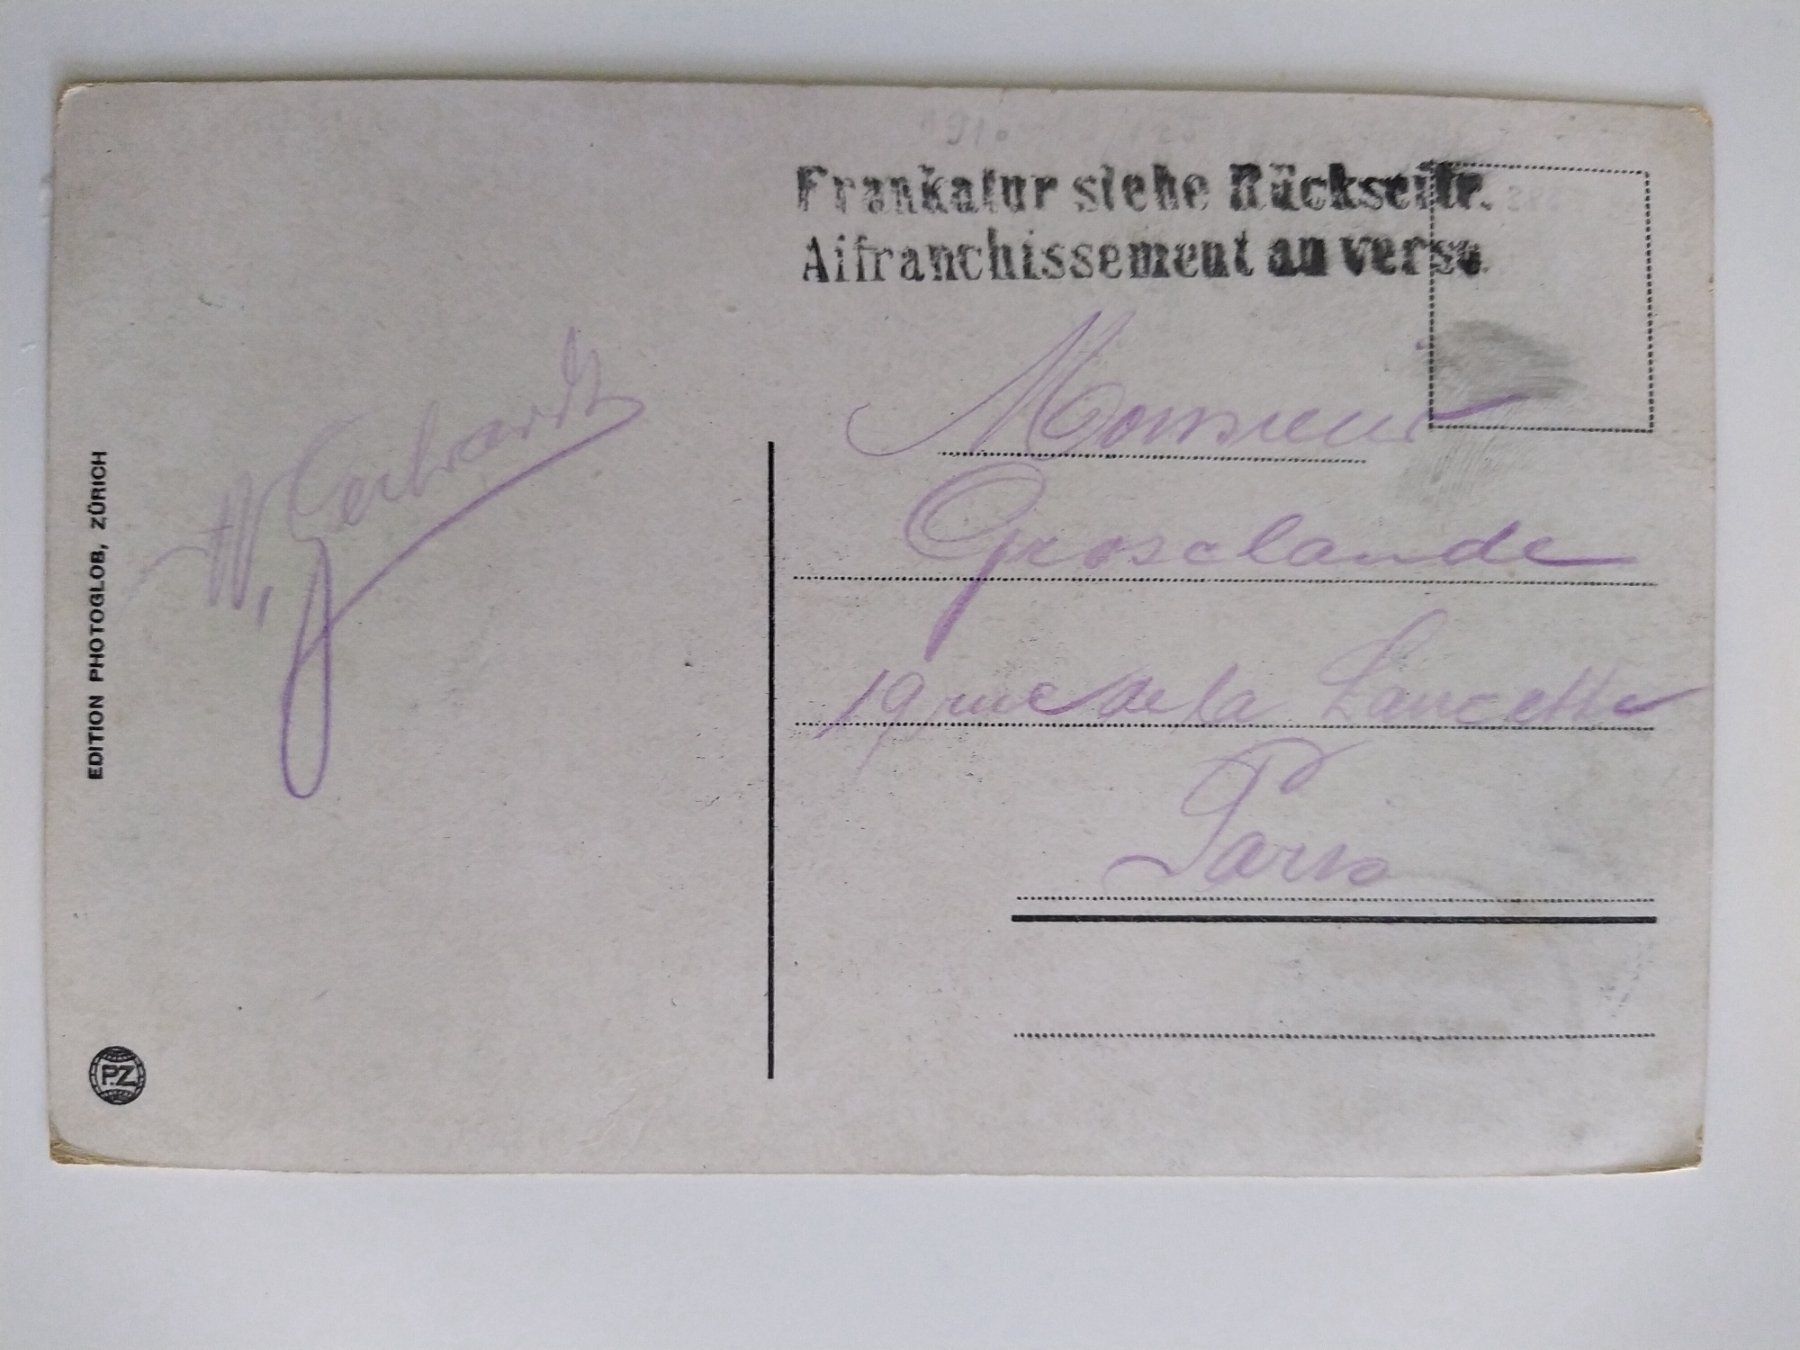 Frankatur siehe Rückseite.
Affranchissement au verso.
Monsieur
Grosclaude
19 rue de la Lancette
Paris
W. Gerhardt
EDITION PHOTOGLOB, ZÜRICH
P.Z